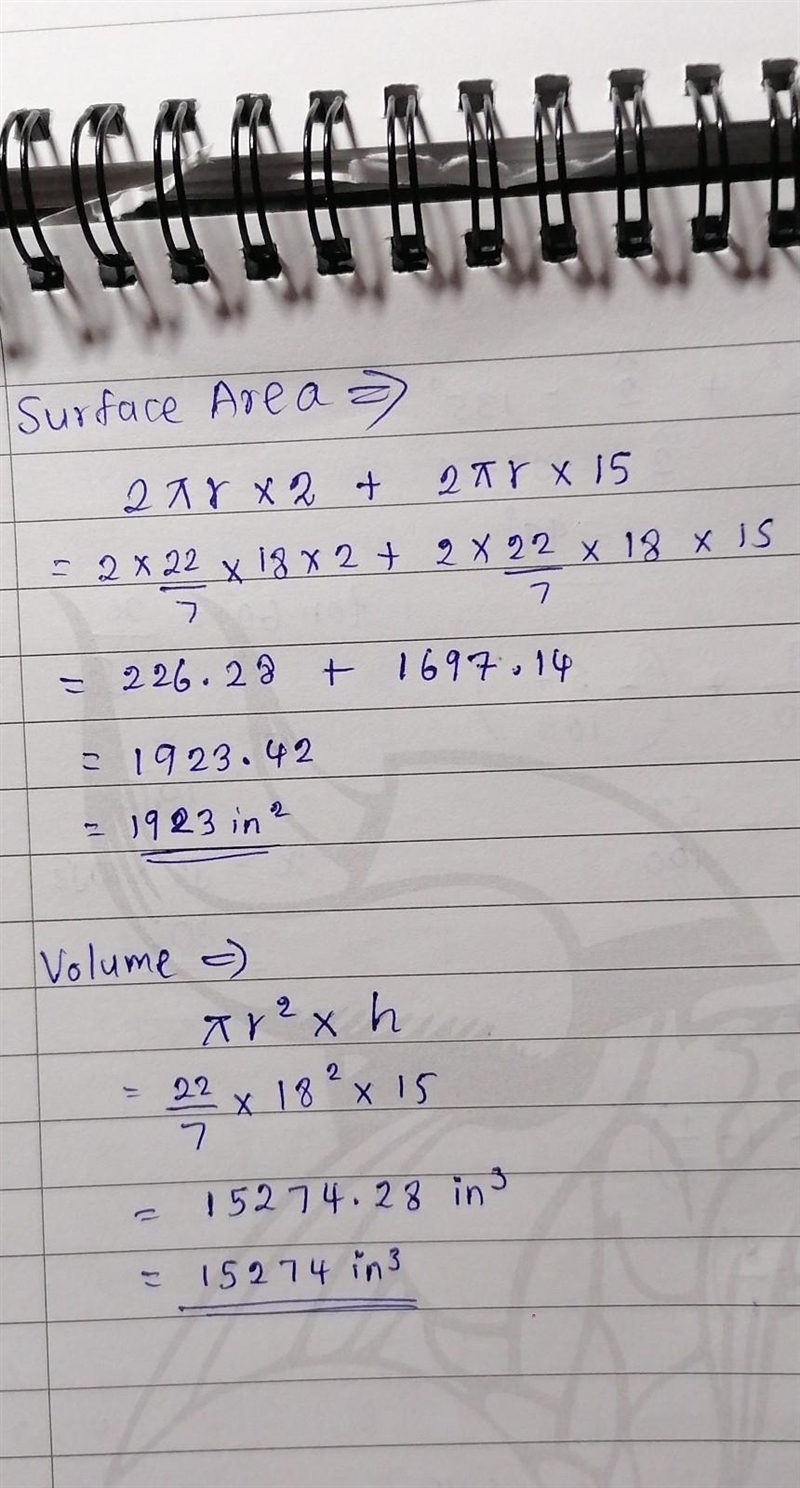 Surface Area ⇒
2πr × 2 + 2πr × 15
= 2 × 22/7 × 18 × 2 + 2 × 22/7 × 18 × 15
= 226.28 + 1697.14
= 1923.42
= 1923 in²
Volume ⇒
πr² × h
= 22/7 × 18² × 15
= 15274.28 in³
= 15274 in³